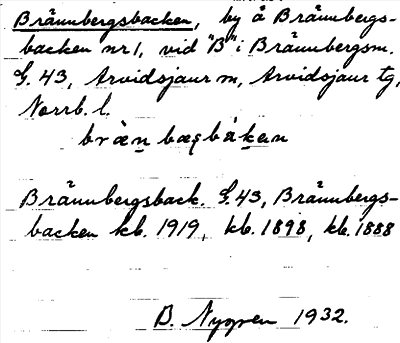 Brännbergsbacken, by å Brännbergs-
backen nr 1, vid "B" i Brännbergsm.
G. 43, Arvidsjaur sn, Arvidsjaur tg,
Norrb. l.
Brännbergsback. G. 43, Brännbergs-
backen kb. 1919, kb. 1898, kb. 1888
B. Nygren 1932.